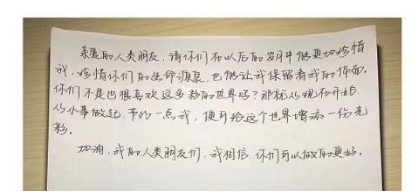 亲爱的人类朋友，请你们在以后的岁月中能更加珍惜
我，珍惜你们的生命源泉，也能让我保留着我的体面。
你们不是也很喜欢这多彩的世界吗？那就从现在开始
从小事做起，节约一点我，便可给这个世界增添一份光
彩。
加油，我的人类朋友们，我相信你们可以做的更好。